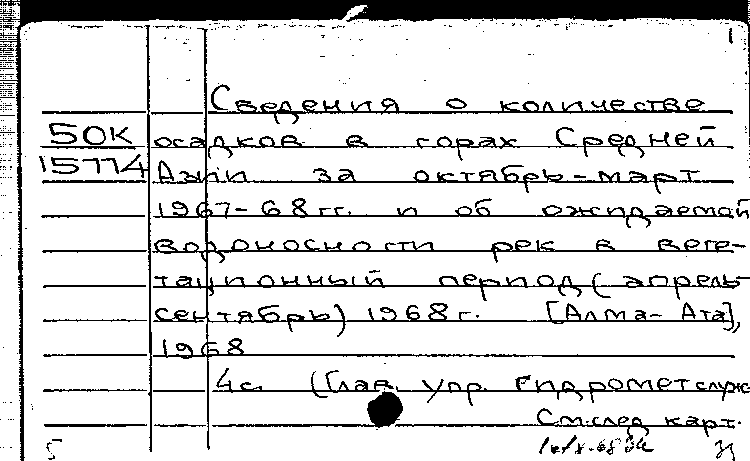 1
Сведения о количестве
50К осадков в горах Средней
15774 Азии за октябрь-март
1967-68 гг. и об ожидаемой
водоносности рек в веге-
тационный период (апрель-
сентябрь) 1968 г. [Алма-Ата],
1968
4 с. (Глав. упр. гидрометслуж
См. след. карт.
5